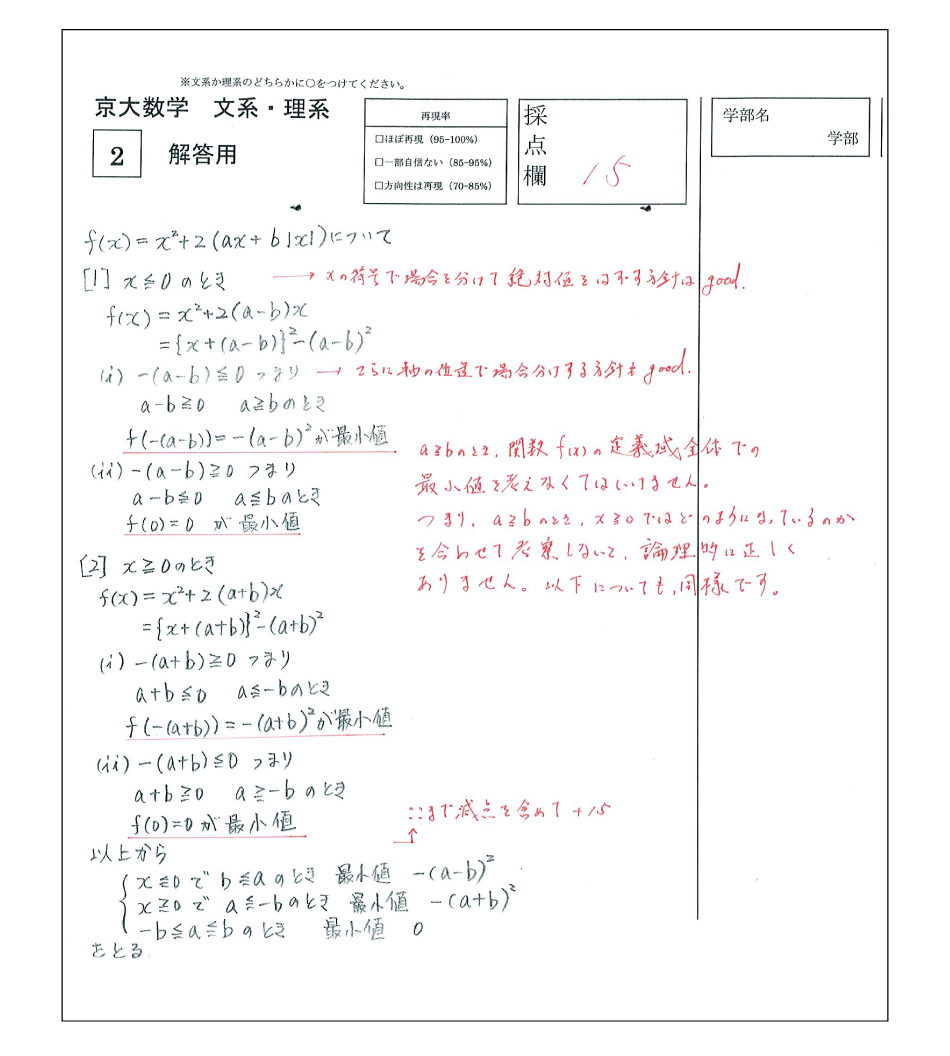 ※文系か理系のどちらかに○をつけてください。
京大数学 文系・理系
2 解答用
再現率
□ほぼ再現（95-100%）
□一部自信ない（85-95%）
□方向性は再現（70-85%）
採点欄 15
学部名
学部
f(x)=x²+2(ax+b|x|)について
[1] x≦0のとき → xの符号で場合を分けて絶対値をはずす方針はgood.
f(x)=x²+2(a-b)x
={x+(a-b)}²-(a-b)²
(i) -(a-b)≦0 つまり → さらに軸の位置で場合分けする方針もgood.
a-b≧0 a≧bのとき
f(-(a-b))=-(a-b)²が最小値
a≧bのとき、関数f(x)の定義域全体での
(ii) -(a-b)≧0 つまり
最小値を考えなくてはいけません。
a-b≦0 a≦bのとき
つまり、a≧bのとき、x≧0ではどのようになっているのか
f(0)=0 が最小値
を合わせて考察しないと、論理的に正しく
[2] x≧0のとき
ありません。以下についても、同様です。
f(x)=x²+2(a+b)x
={x+(a+b)}²-(a+b)²
(i) -(a+b)≧0 つまり
a+b≦0 a≦-bのとき
f(-(a+b))=-(a+b)²が最小値
(ii) -(a+b)≦0 つまり
a+b≧0 a≧-bのとき
f(0)=0が最小値
ここまで減点を含めて+15
↑
以上から
x≦0で b≦aのとき 最小値 -(a-b)²
x≧0で a≦-bのとき 最小値 -(a+b)²
-b≦a≦bのとき 最小値 0
をとる